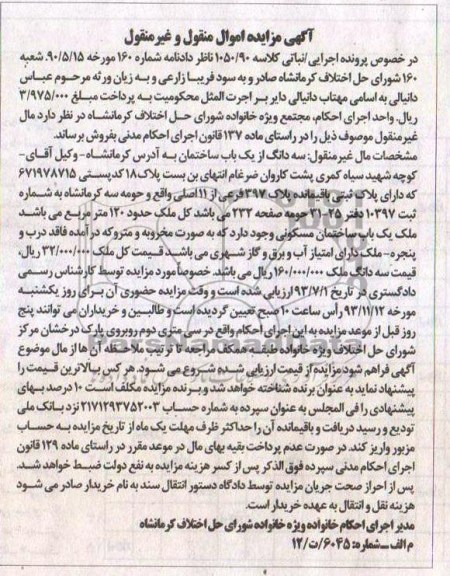 آگهی مزایده اموال منقول و غیرمنقول
در خصوص پرونده اجرایی/نیاتی کلاسه ۱۰۵۰/۹۰ ناظر دادنامه شماره ۱۶۰ مورخه ۹۰/۵/۱۵ شعبه
۱۶۰ شورای حل اختلاف کرمانشاه صادر و به سود فریبا زارعی و به زیان ورثه مرحوم عباس
دانیالی به اسامی مهتاب دانیالی دایر بر اجرت المثل محکومیت به پرداخت مبلغ ۳/۹۷۵/۰۰۰
ریال. واحد اجرای احکام، مجتمع ویژه خانواده شورای حل اختلاف کرمانشاه در نظر دارد مال
غیرمنقول موصوف ذیل را در راستای ماده ۱۳۷ قانون اجرای احکام مدنی بفروش برساند.
مشخصات مال غیرمنقول: سه دانگ از یک باب ساختمان به آدرس کرمانشاه- وکیل آقای-
کوچه شهید سیاه کمری پشت کاروان ضرغام انتهای بن بست پلاک۱۸ کدپستی ۶۷۱۹۷۸۷۱۵
که دارای پلاک ثبتی باقیمانده پلاک ۳۹۷فرعی از ۱۱اصلی واقع و حومه سه کرمانشاه به شماره
ثبت ۱۰۳۹۷ دفتر ۲۵-۷۱ حومه صفحه ۲۳۲ می باشد کل ملک حدود ۱۲۰ متر مربع می باشد
ملک یک باب ساختمان مسکونی وجود دارد که به صورت مخروبه و متروکه در آمده فاقد درب و
پنجره-ملک دارای امتیاز آب و برق و گاز شهری می باشد قیمت کل ملک ۳۲/۰۰۰/۰۰۰ ریال،
قیمت سه دانگ ملک ۱۶۰/۰۰۰/۰۰۰ ریال می باشد. خصوصاً مورد مزایده توسط کارشناس رسمی
دادگستری در تاریخ ۹۳/۷/۱ ارزیابی شده است و وقت مزایده حضوری آن برای روز یکشنبه
مورخه ۹۳/۱۱/۱۲ رأس ساعت ۱۰ صبح تعیین گردیده است و طالبین و خریداران می توانند پنج
روز قبل از موعد مزایده به این اجرای احکام واقع در سی متری دوم روبروی پارک درخشان مرکز
شورای حل اختلاف ویژه خانواده طبقه همکف مراجعه تا ترتیب ملاحظه آن ها از مال موضوع
آگهی فراهم شود مزایده از قیمت ارزیابی شده شروع می شود. هر کس بالاترین قیمت را
پیشنهاد نماید به عنوان برنده شناخته خواهد شد و برنده مزایده مکلف است ۱۰ درصد بهای
پیشنهادی را فی المجلس به عنوان سپرده به شماره حساب ۲۱۷۱۲۹۳۷۵۲۰۰۳ نزد بانک ملی
تودیع و رسید دریافت و باقیمانده آن را حداکثر ظرف مهلت یک ماه از تاریخ مزایده به حساب
مزبور واریز کند. در صورت عدم پرداخت بقیه بهای مال در موعد مقرر در راستای ماده ۱۲۹ قانون
اجرای احکام مدنی سپرده فوق الذکر پس از کسر هزینه مزایده به نفع دولت ضبط خواهد شد.
پس از احراز صحت جریان مزایده توسط دادگاه دستور انتقال سند به نام خریدار صادر می شود
هزینه نقل و انتقال به عهده خریدار است.
مدیر اجرای احکام خانواده ویژه خانواده شورای حل اختلاف کرمانشاه
م الف-شماره: ۶۰۴۵/ت/۱۲